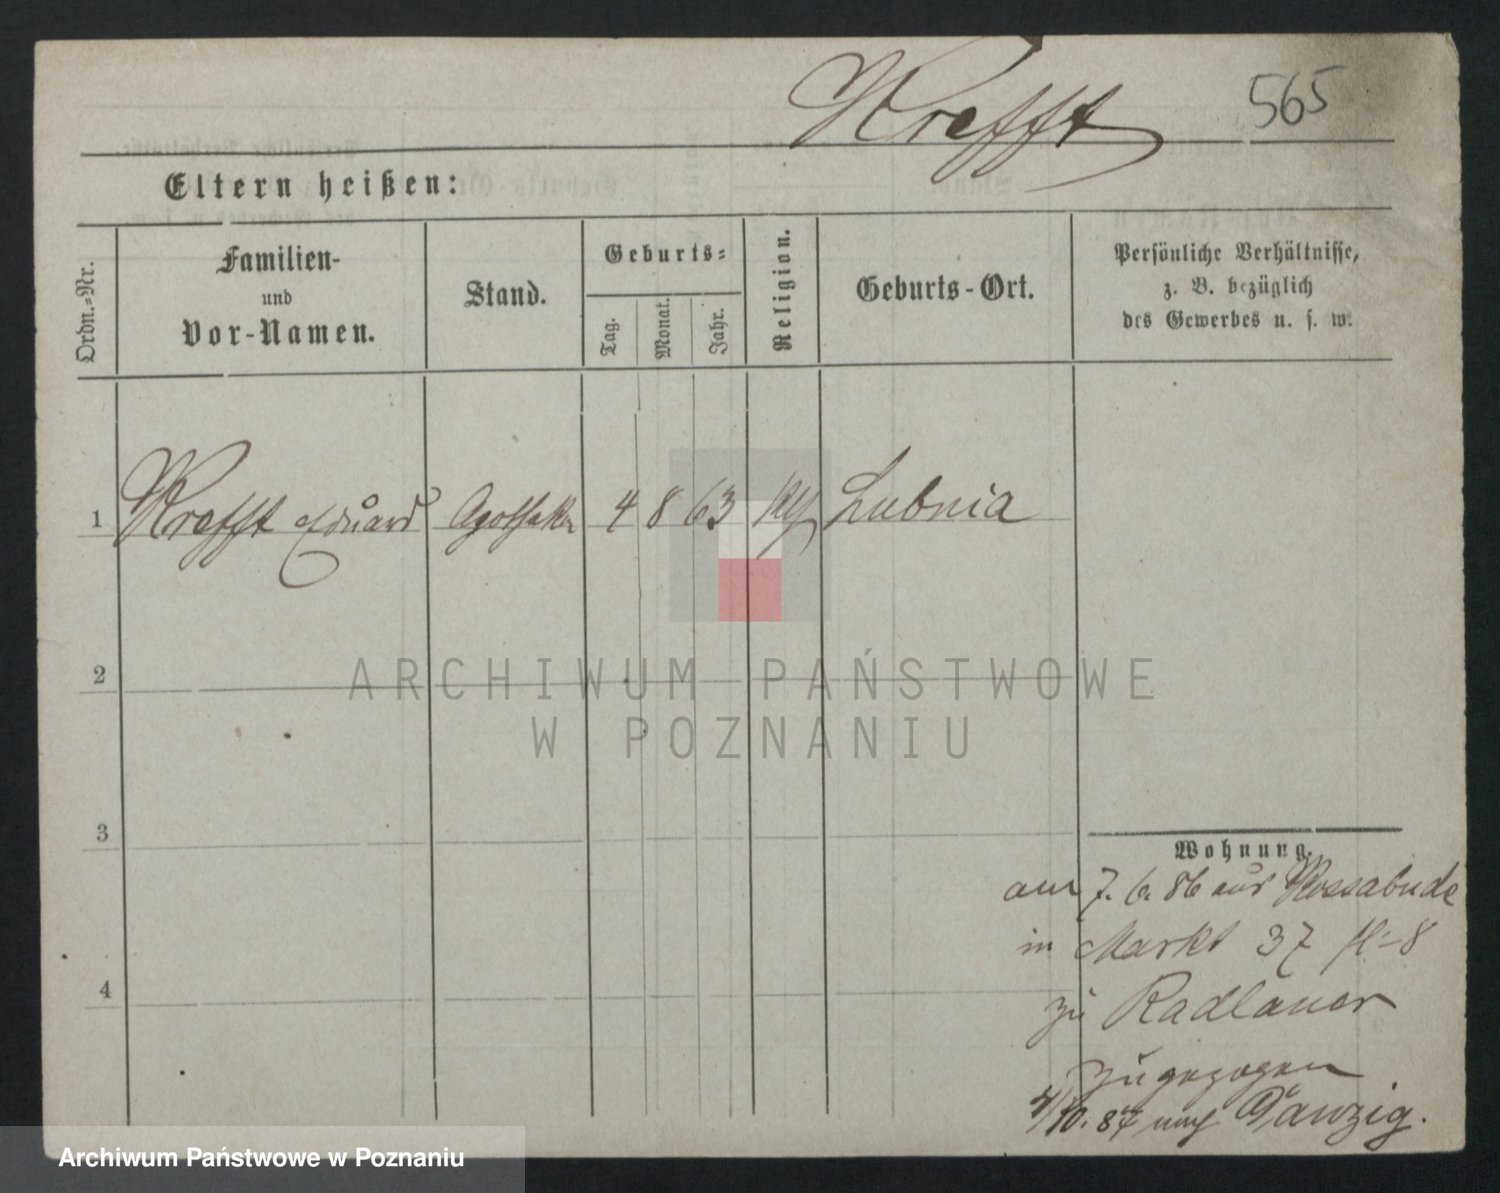 Krefft 565
Eltern heißen:
Ordn.=Nr.
Familien-
und
Vor-Namen.
Stand.
Geburts=
Tag.
Monat.
Jahr.
Religion.
Geburts-Ort.
Persönliche Verhältnisse,
z. B. bezüglich
des Gewerbes u. s. w.
1 Krefft Eduard Apotheker 4 8 63 Lubnia
2
3
4
Wohnung.
am 7. 6. 86 aus
in Markt 37
zu Radlauer
zugezogen
10. 87 nach Danzig.
ARCHIWUM PAŃSTWOWE
W POZNANIU
Archiwum Państwowe w Poznaniu